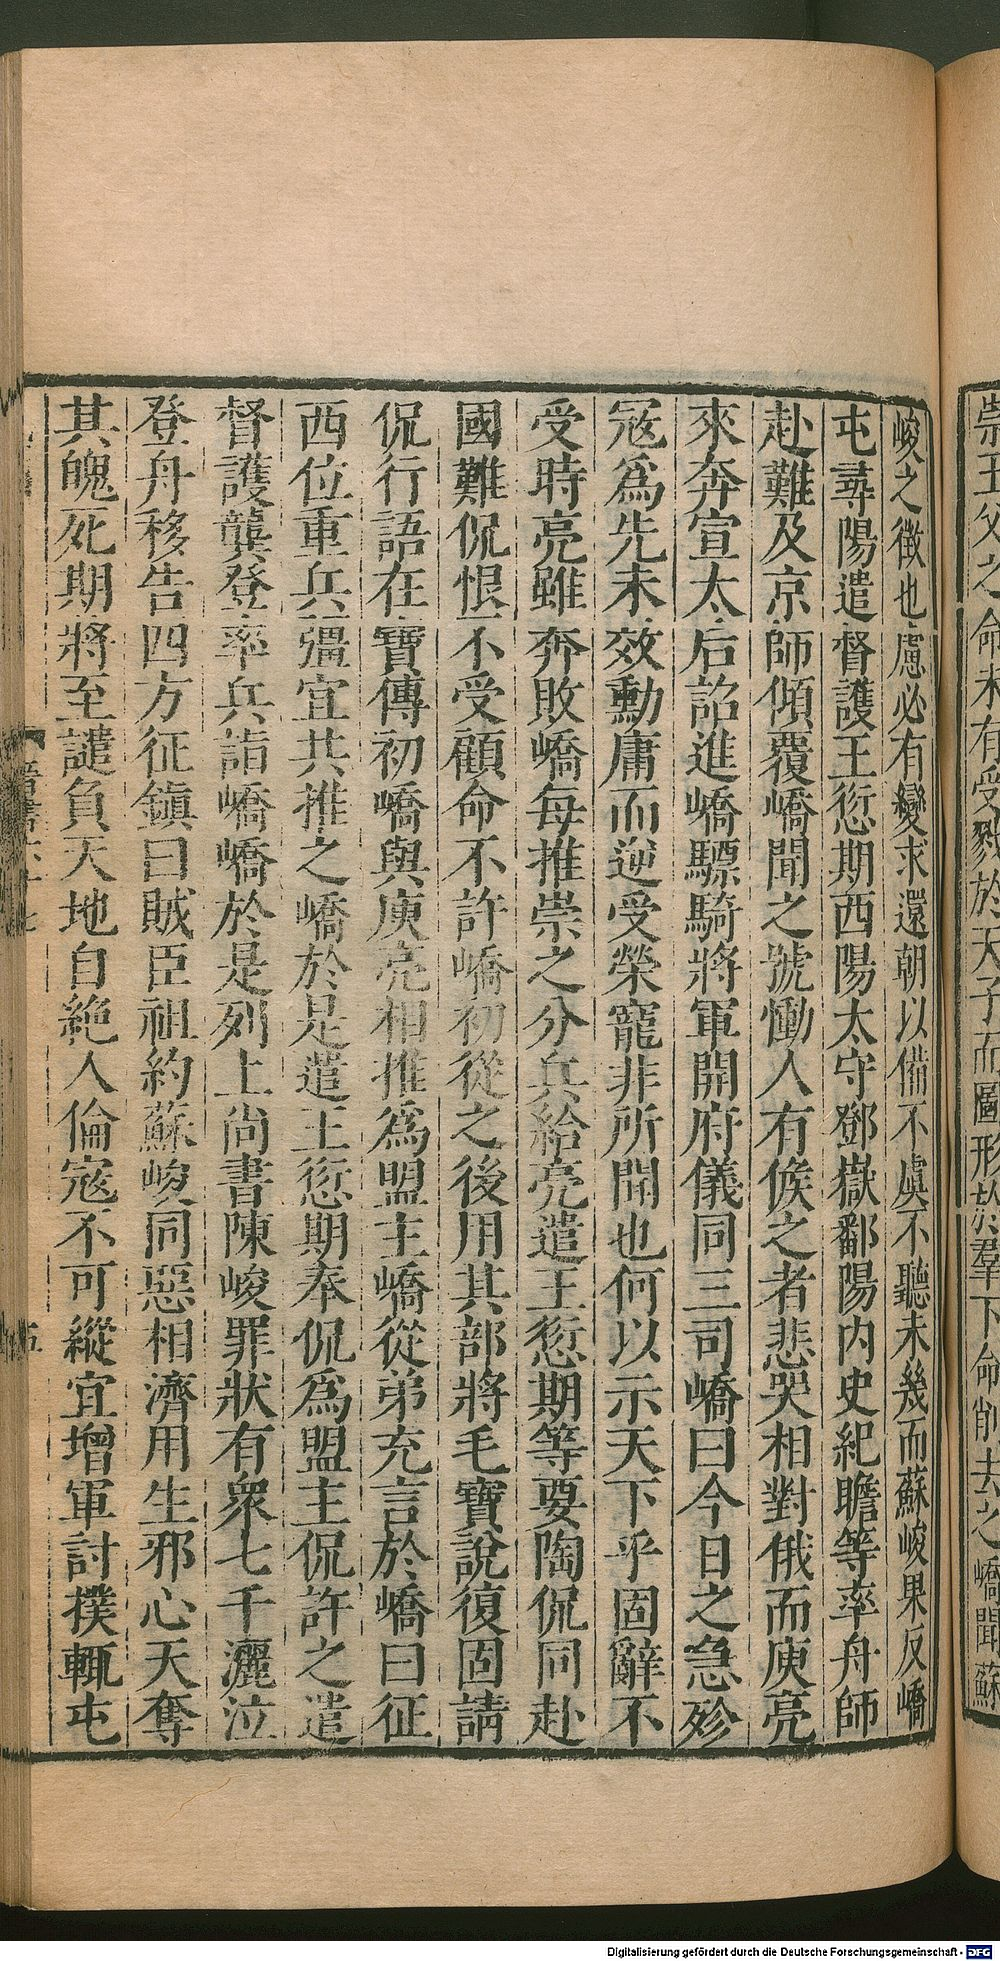 崇王父之命未有受戮於天子而圖形於羣下命削去之嶠聞蘇
峻之徵也慮必有變求還朝以備不虞不聽未幾而蘇峻果反嶠
屯尋陽遣督護王愆期西陽太守鄧嶽鄱陽内史紀瞻等率舟師
赴難及京師傾覆嶠聞之號慟人有候之者悲哭相對俄而庾亮
來奔宣太后詔進嶠驃騎將軍開府儀同三司嶠曰今日之急殄
寇爲先未效勳庸而逆受榮寵非所聞也何以示天下乎固辭不
受時亮雖奔敗嶠每推崇之分兵給亮遣王愆期等要陶侃同赴
國難侃恨不受顧命不許嶠初從之後用其部將毛寶說復固請
侃行語在寶傳初嶠與庾亮相推爲盟主嶠從弟充言於嶠曰征
西位重兵彊宜共推之嶠於是遣王愆期奉侃爲盟主侃許之遣
督護龔登率兵詣嶠嶠於是列上尚書陳峻罪狀有衆七千灑泣
登舟移告四方征鎮曰賊臣祖約蘇峻同惡相濟用生邪心天奪
其魄死期將至譴負天地自絶人倫寇不可縱宜增軍討撲輒屯
Digitalisierung gefördert durch die Deutsche Forschungsgemeinschaft - DFG